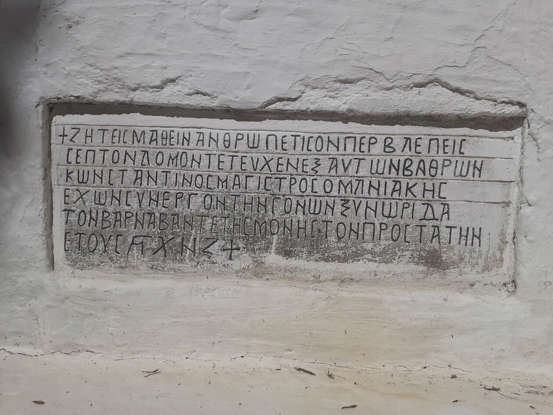 +ΖΗΤΕΙCΜΑΘΕΙΝΑΝΘΡΩΠΕΤΙCΟΝΠΕΡΒΛΕΠΕΙC
CΕΠΤΟΝΔΟΜΟΝΤΕΤΕΥΧΕΝΕΞΑΥΤΩΝΒΑΘΡΩΝ
ΚΩΝCΤΑΝΤΙΝΟCΜΑΓΙCΤΡΟCΟΜΑΝΙΑΚΗC
ΕΧΩΝCΥΝΕΡΓΟΝΤΗΝΓΟΝΩΝΞΥΝΩΡΙΔΑ
ΤΟΝΒΑΡΝΑΒΑΝΤΕΤΗCΜΟΝΗCΤΟΝΠΡΟCΤΑΤΗΝ
ΕΤΟΥC ϚΧΝΖ+